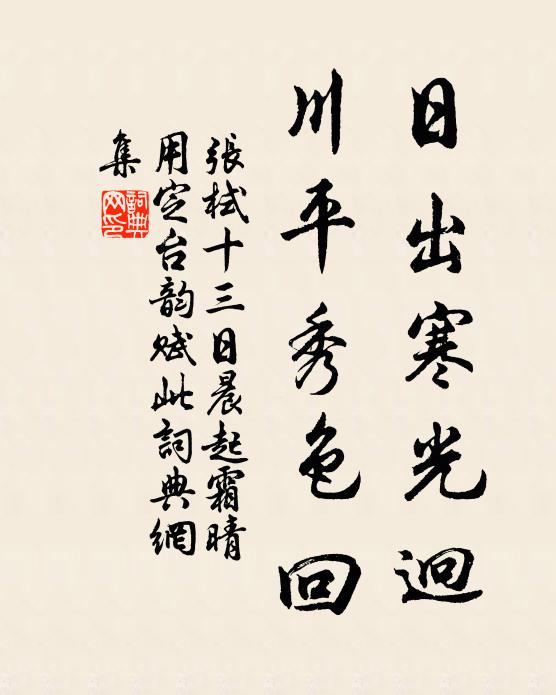 日出寒光迥
川平秀色回
張栻十三日晨起霜晴
用定台韵賦此詞典網
集
詞典
网印